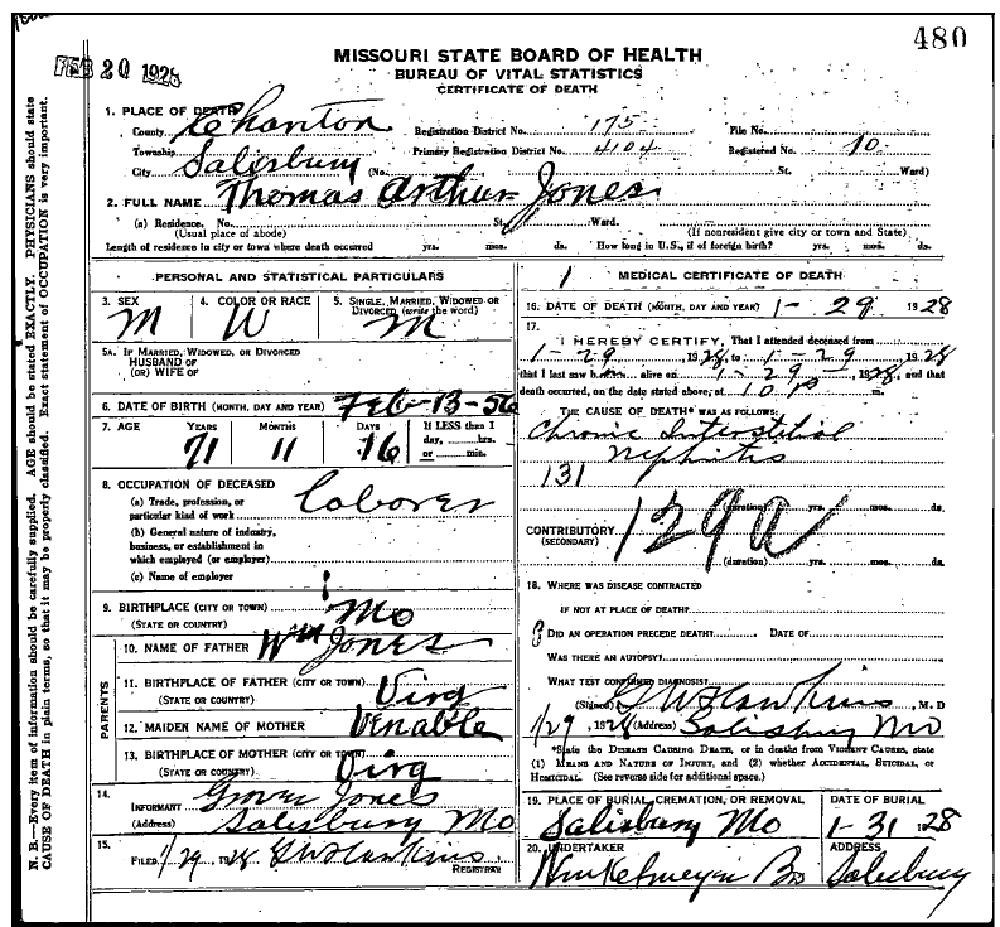 480
FEB 20 1928
MISSOURI STATE BOARD OF HEALTH
BUREAU OF VITAL STATISTICS
CERTIFICATE OF DEATH
1. PLACE OF DEATH
County Chariton Registration District No. 175 File No.
Township Primary Registration District No. 4104 Registered No. 10
City Salisbury (No. St. Ward)
2. FULL NAME Thomas Arthur Jones
(a) Residence. No. St. Ward.
(Usual place of abode) (If nonresident give city or town and State)
Length of residence in city or town where death occurred yrs. mos. ds. How long in U.S., if of foreign birth? yrs. mos. ds.
PERSONAL AND STATISTICAL PARTICULARS
3. SEX M
4. COLOR OR RACE W
5. SINGLE, MARRIED, WIDOWED OR DIVORCED (write the word) M
5A. IF MARRIED, WIDOWED, OR DIVORCED
HUSBAND OF
(OR) WIFE OF
6. DATE OF BIRTH (MONTH, DAY AND YEAR) Feb-13-56
7. AGE YEARS MONTHS DAYS If LESS than 1
day, hrs.
or min.
71 11 16
8. OCCUPATION OF DECEASED
(a) Trade, profession, or
particular kind of work Laborer
(b) General nature of industry,
business, or establishment in
which employed (or employer)
(c) Name of employer
9. BIRTHPLACE (CITY OR TOWN) Mo
(STATE OR COUNTRY)
PARENTS
10. NAME OF FATHER Wm Jones
11. BIRTHPLACE OF FATHER (CITY OR TOWN)
(STATE OR COUNTRY) Virg
12. MAIDEN NAME OF MOTHER Venable
13. BIRTHPLACE OF MOTHER (CITY OR TOWN)
(STATE OR COUNTRY) Virg
14.
INFORMANT Grover Jones
(Address) Salisbury Mo
15.
FILED 1/29 1928 G W Hawkins
REGISTRAR
1 MEDICAL CERTIFICATE OF DEATH
16. DATE OF DEATH (MONTH, DAY AND YEAR) 1 - 29 1928
17.
I HEREBY CERTIFY, That I attended deceased from
1-29, 1928, to 1-29 1928
that I last saw h alive on 1-29-, 1928, and that
death occurred, on the date stated above, at 10 P m.
THE CAUSE OF DEATH* WAS AS FOLLOWS:
Chronic Interstitial
Nephritis
131
(duration) yrs. mos. ds.
CONTRIBUTORY 129a
(SECONDARY)
(duration) yrs. mos. ds.
18. WHERE WAS DISEASE CONTRACTED
IF NOT AT PLACE OF DEATH?
DID AN OPERATION PRECEDE DEATH? DATE OF
WAS THERE AN AUTOPSY?
WHAT TEST CONFIRMED DIAGNOSIS?
(Signed) G W Hawkins, M. D
1/29, 1928 (Address) Salisbury Mo
*State the DISEASE CAUSING DEATH, or in deaths from VIOLENT CAUSES, state
(1) MEANS AND NATURE OF INJURY, and (2) whether ACCIDENTAL, SUICIDAL, or
HOMICIDAL. (See reverse side for additional space.)
19. PLACE OF BURIAL, CREMATION, OR REMOVAL DATE OF BURIAL
Salisbury Mo 1-31 1928
20. UNDERTAKER ADDRESS
Winkelmeyer Bro Salisbury
N. B.—Every item of information should be carefully supplied. AGE should be stated EXACTLY. PHYSICIANS should state
CAUSE OF DEATH in plain terms, so that it may be properly classified. Exact statement of OCCUPATION is very important.